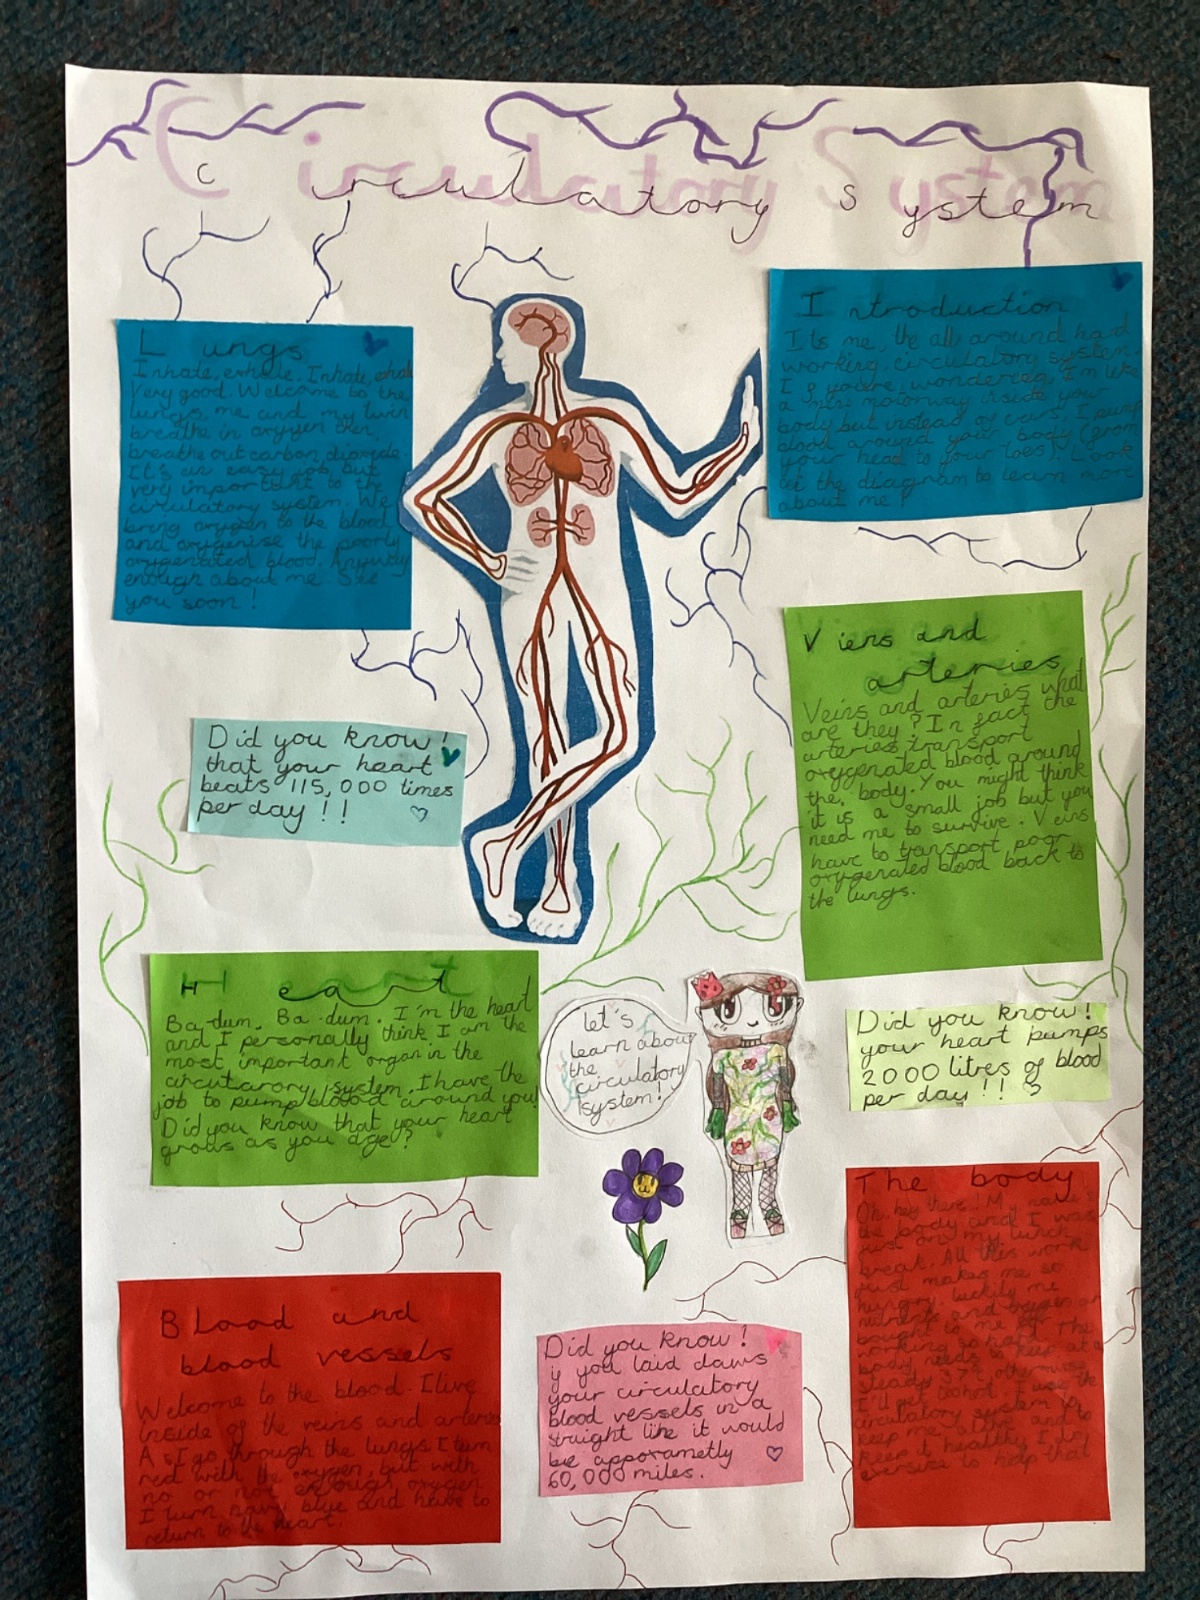 Circulatory System
Lungs
Inhale, exhale. Inhale, exhale
Very good. Welcome to the
lungs, me and my twin
breathe in oxygen then
breathe out carbon dioxide.
It's an easy job but
very important to the
circulatory system. We
bring oxygen to the blood
and oxygenise the poorly
oxygenated blood. Anyway
enough about me. See
you soon!
Introduction
Its me, the all around hard
working, circulatory system.
If you're wondering, I'm like
a mini motorway inside your
body but instead of cars, I pump
blood around your body (from
your head to your toes). Look
at the diagram to learn more
about me!
Did you know!
that your heart
beats 115,000 times
per day!!
Viens and
arteries
Veins and arteries what
are they? In fact the
arteries transport
oxygenated blood around
the, body. You might think
it is a small job but you
need me to survive. Veins
have to transport poor
oxygenated blood back to
the lungs.
Heart
Ba-dum. Ba-dum. I'm the heart
and I personally think I am the
most important organ in the
circutarory system. I have the
job to pump blood around you!
Did you know that your heart
grows as you age?
let's
learn about
the
circulatory
system!
Did you know!
your heart pumps
2000 litres of blood
per day!!
Blood and
blood vessels
Welcome to the blood. I live
inside of the veins and arteries
As I go through the lungs I turn
red with the oxygen, but with
no or not enough oxygen
I turn navy blue and have to
return to the heart.
Did you know!
if you laid daws
your circulatory
blood vessels in a
straight like it would
be apporametly
60,000 miles.
The body
Oh, hey there! My name's
the body and I was
just on my lunch
break. All this work
just makes me so
hungry. luckily me
nutrients and oxygen are
bought to me for
working so hard. The
body needs to keep at a
steady 37°c otherwise
I'll get I use the
circulatory system to
keep me alive and to
keep it healthy I do
exersise to help that